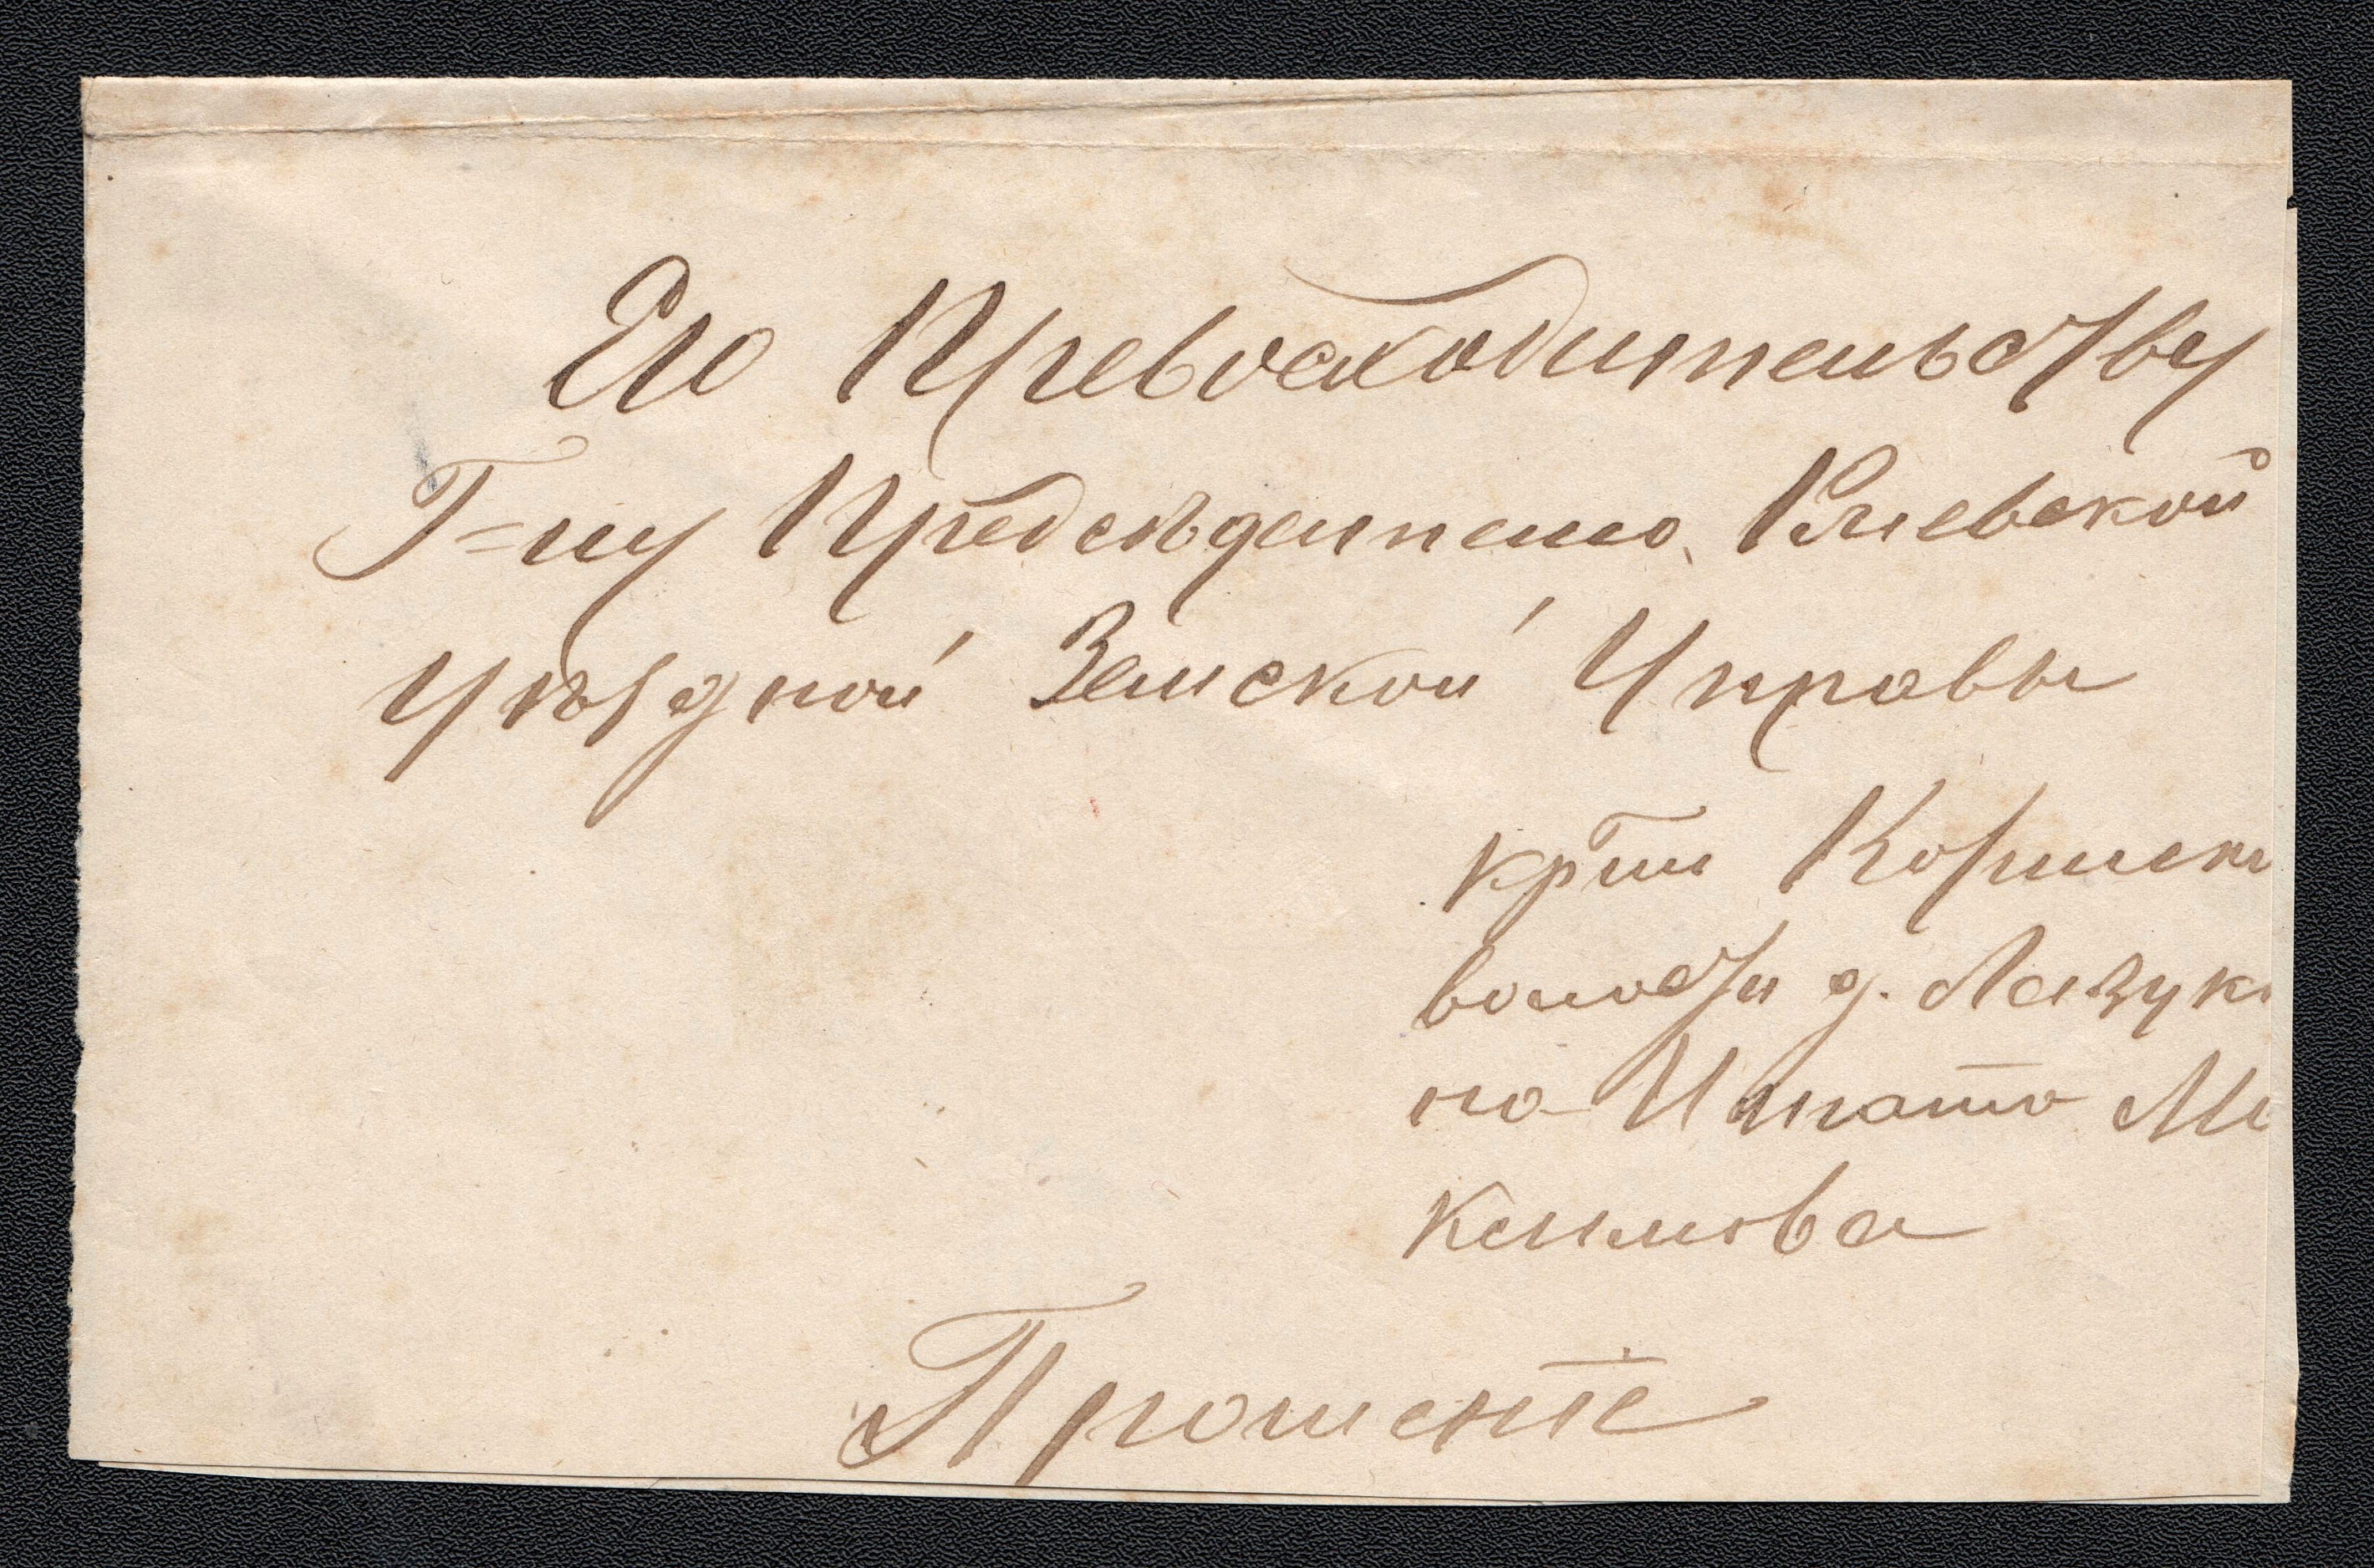 Его Превосходительству
Г=ну Председателю Ржевской
Уѣздной Земской Управы
крти Коршек
волости д. Лазук
на Игната Ма
ксимова
Прошенiе